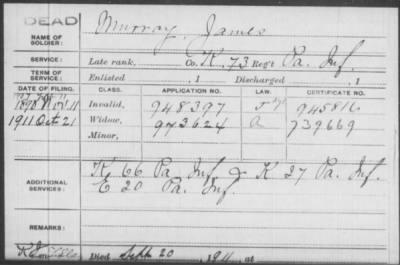 DEAD
NAME OF SOLDIER: Murray, James
SERVICE: Late rank, Co. K, 73 Reg't Pa. Inf.
TERM OF SERVICE: Enlisted , 1 Discharged , 1
DATE OF FILING. CLASS. APPLICATION NO. LAW. CERTIFICATE NO.
1890 Nov. 11 Invalid, 948397 945816
1911 Oct 21 Widow, 973624 739669
Minor,
ADDITIONAL SERVICES: K, 66 Pa. Inf. & K 27 Pa. Inf.
E 20 Pa. Inf.
REMARKS:
Died Sept 20, 1911, at